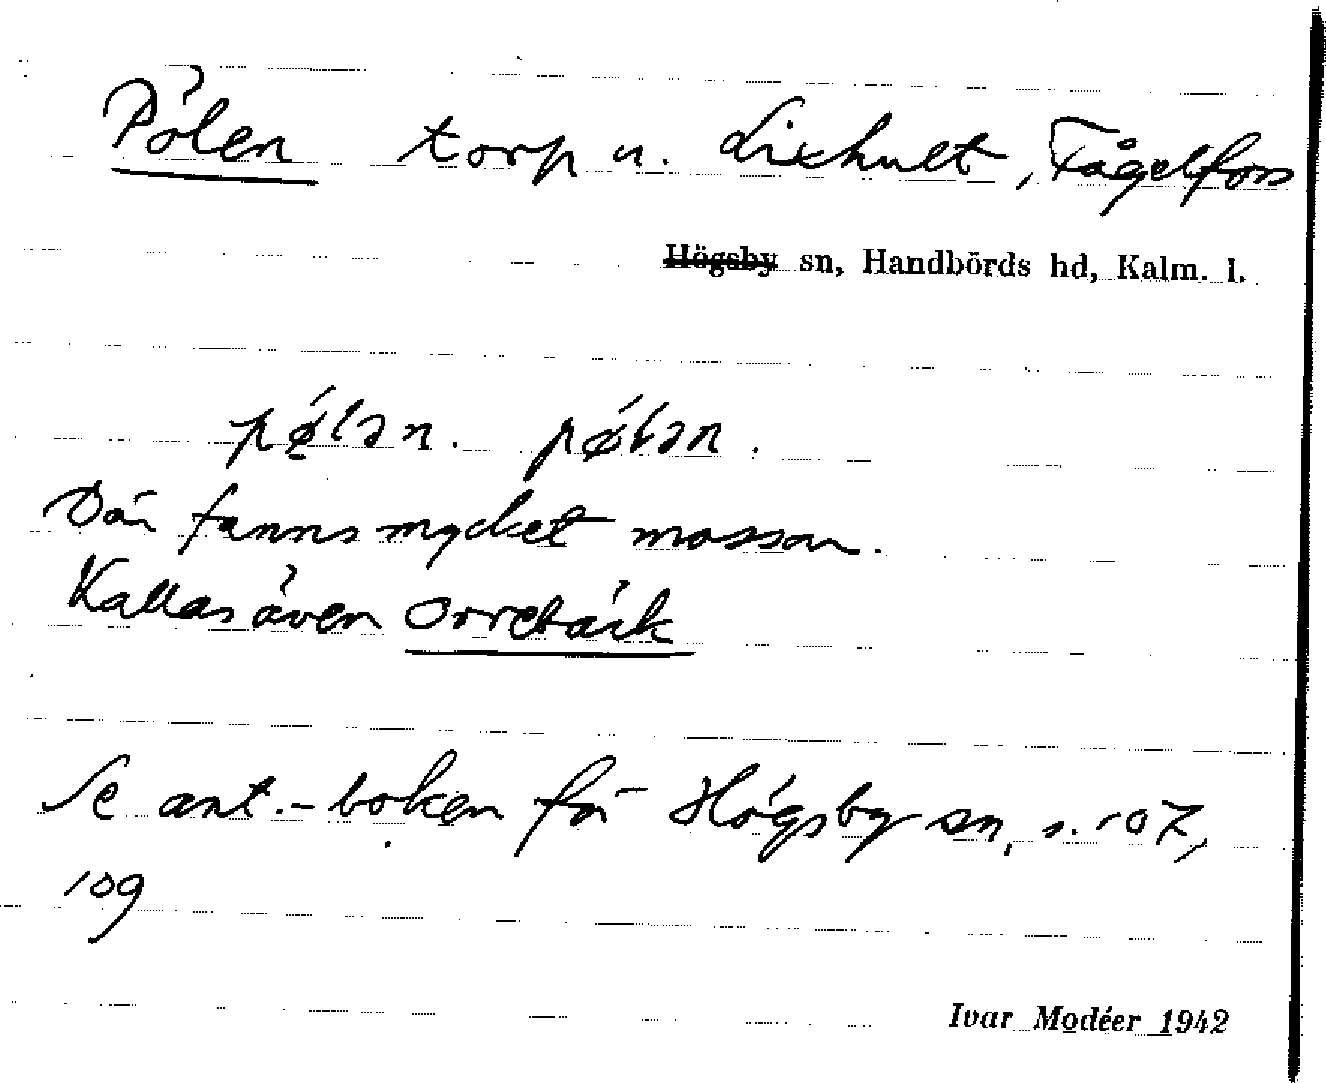 Pölen torp u. Lixhult, Fågelfors
Högsby sn, Handbörds hd, Kalm. l.
pǿlən. pǿlən.
Där fanns mycket mossar.
Kallas även Orrebäck
Se ant.-boken för Högsby sn, s. 107,
109
Ivar Modéer 1942